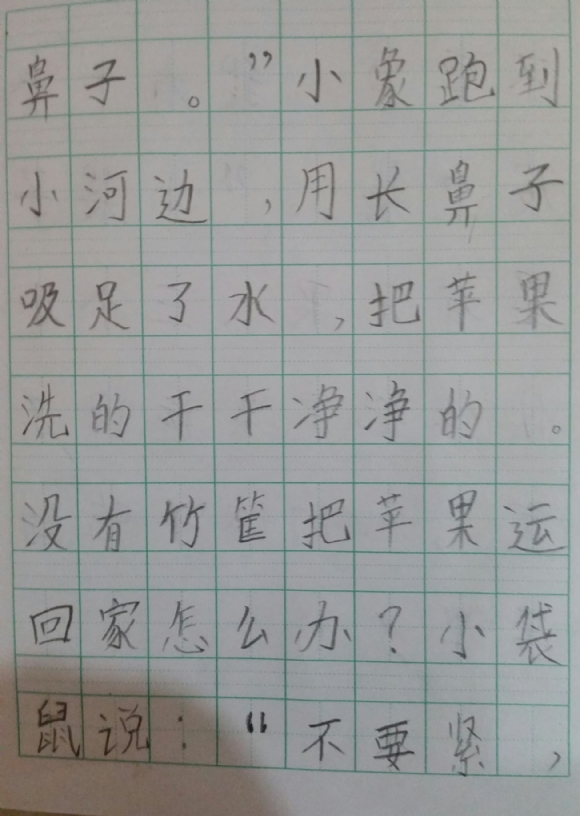 鼻子。”小象跑到
小河边，用长鼻子
吸足了水，把苹果
洗的干干净净的。
没有竹筐把苹果运
回家怎么办？小袋
鼠说：“不要紧，